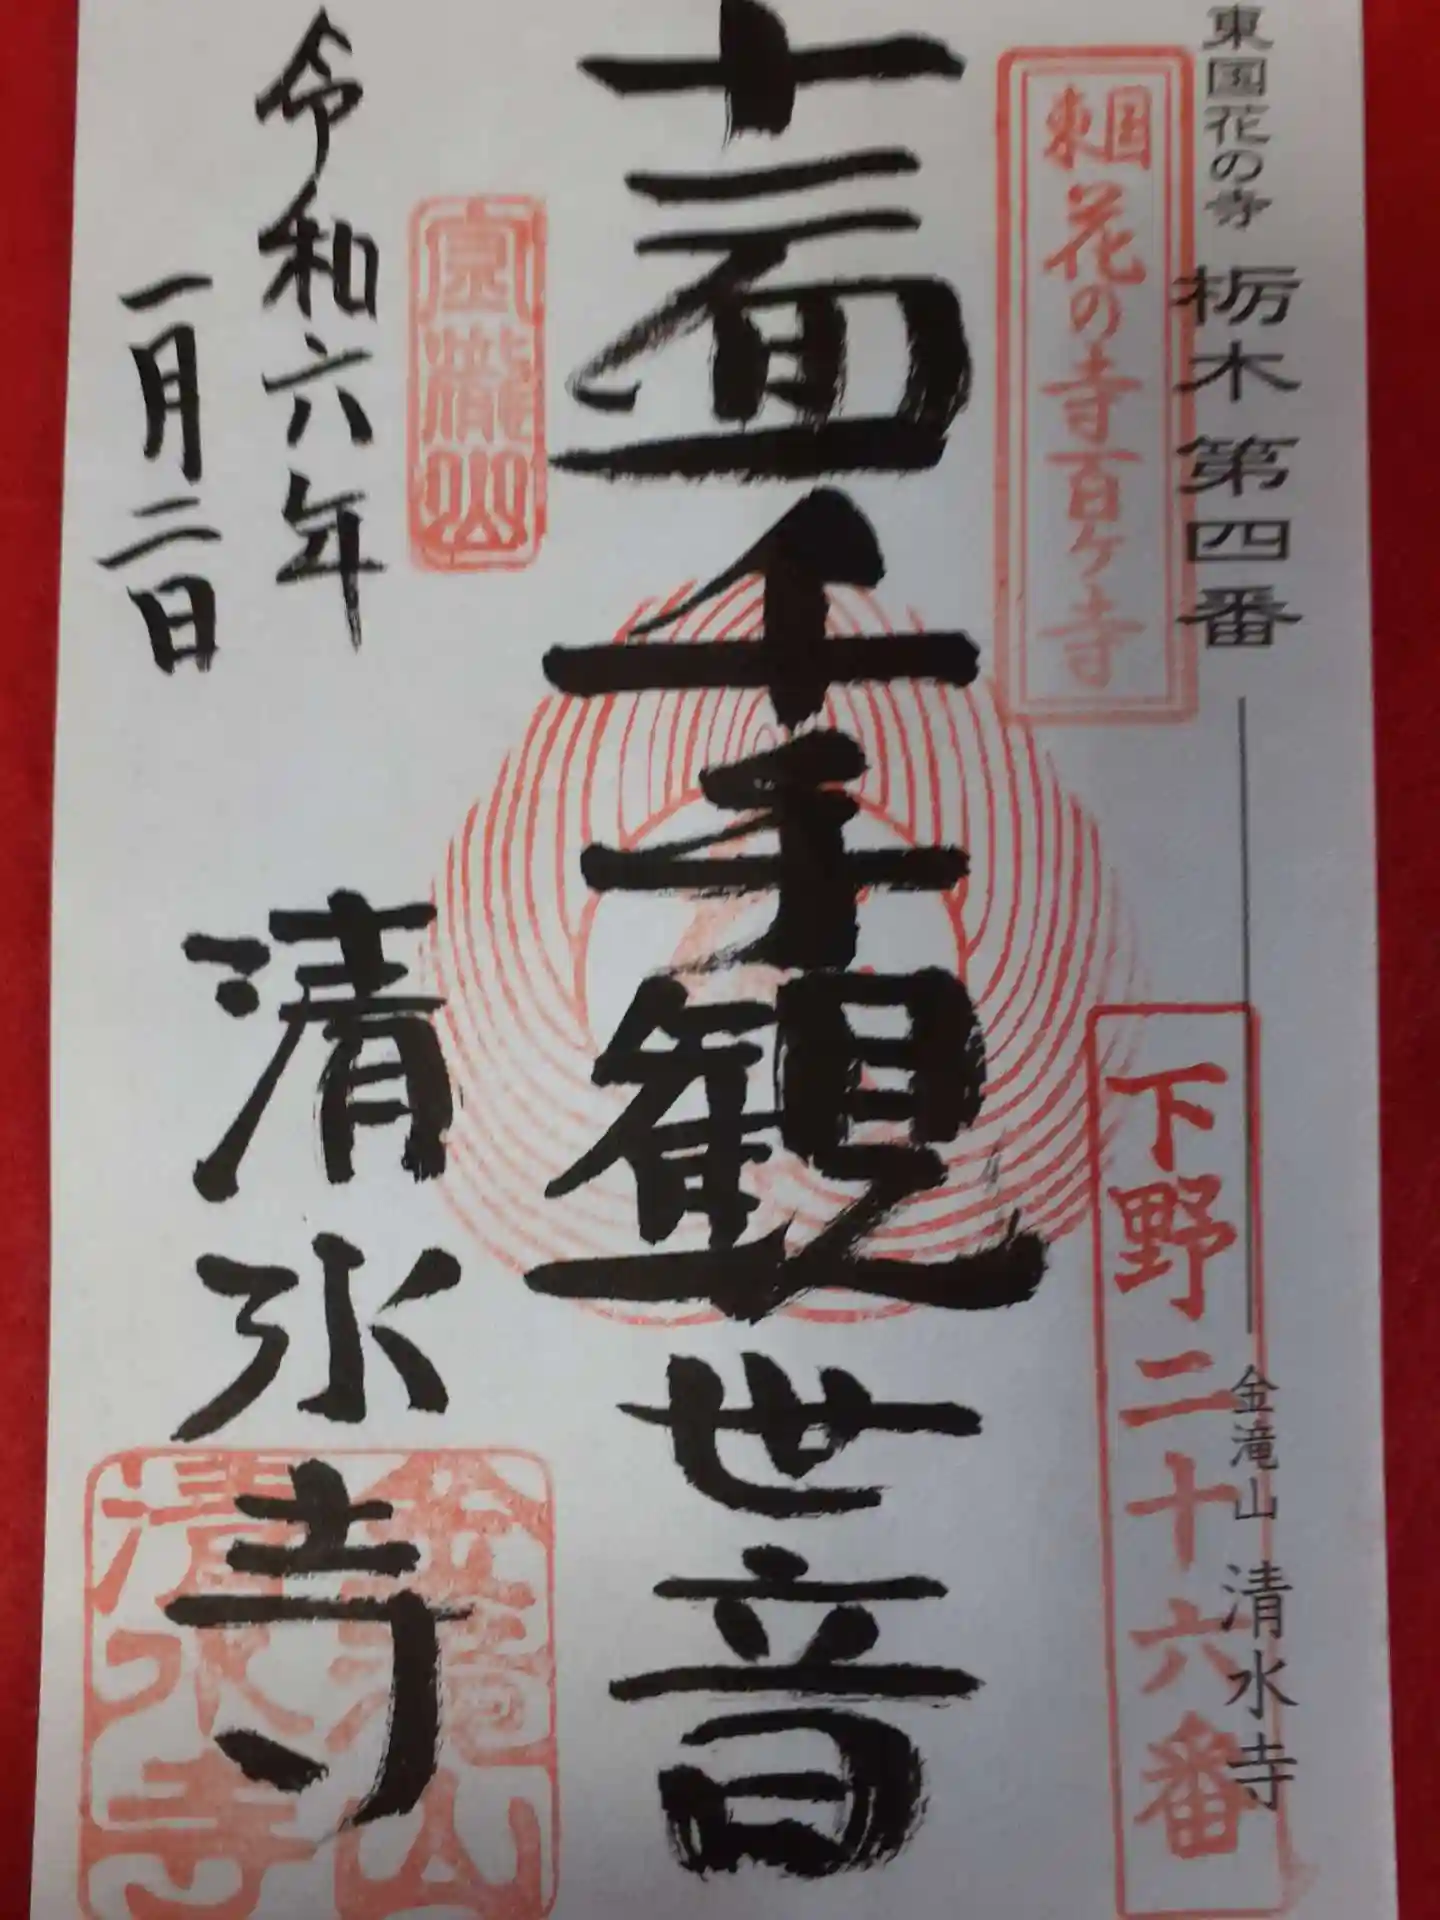 東国花の寺 栃木第四番
金滝山 清水寺
東国花の寺百ヶ寺
下野二十六番
十一面千手観世音
令和六年
一月二日
清水寺
金滝山
清水寺